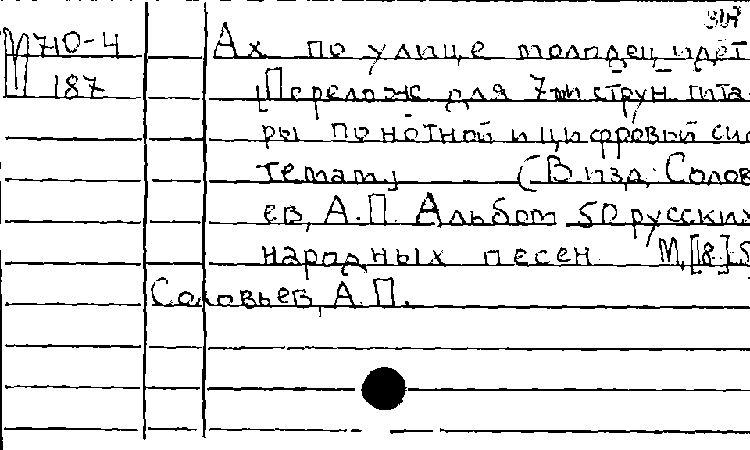 347
М 710-4 Ах по улице молодец идёт
187 [Перелож для 7ми струн гита-
ры по нотной и цифровой сис
темам] (В изд: Солов
ев, А.П. Альбом 50 русских
народных песен М, [8.]
Соловьев, А.П.